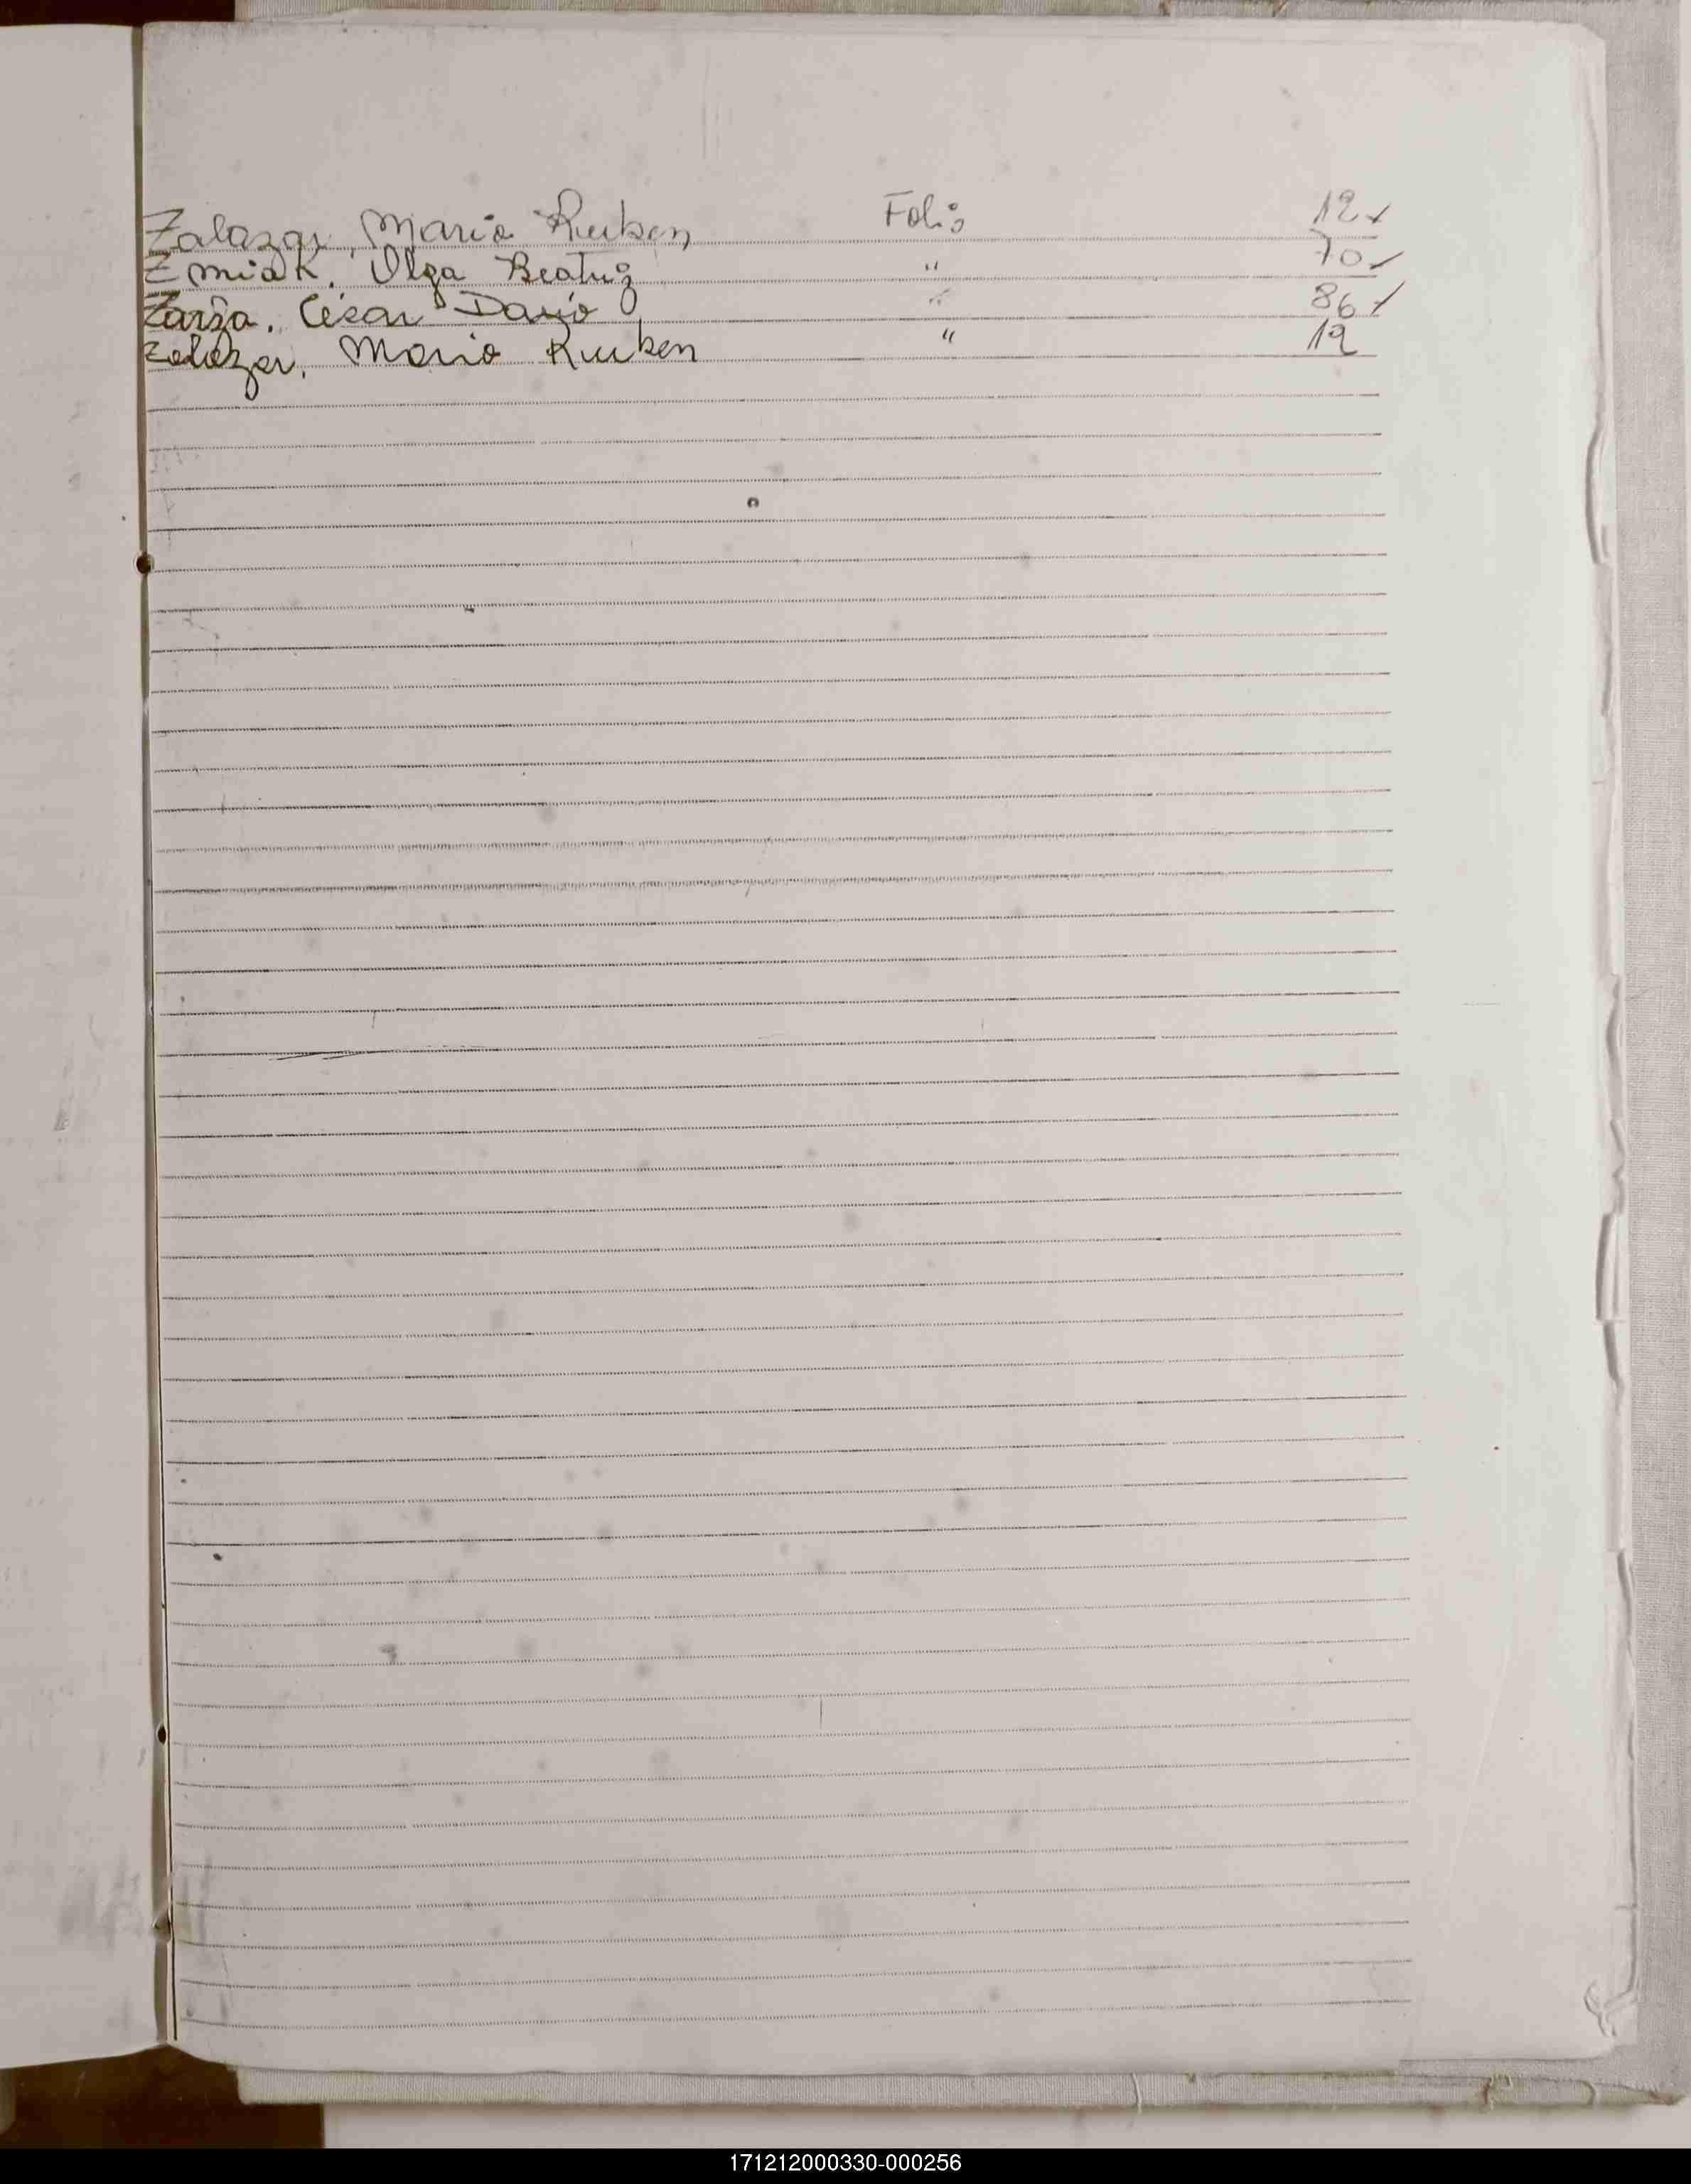 Zalazar, Mario Ruben Folio 12
Zmiak, Olga Beatriz " 70
Zarza, César Darío " 86
Zalazar, Mario Ruben " 12
171212000330-000256